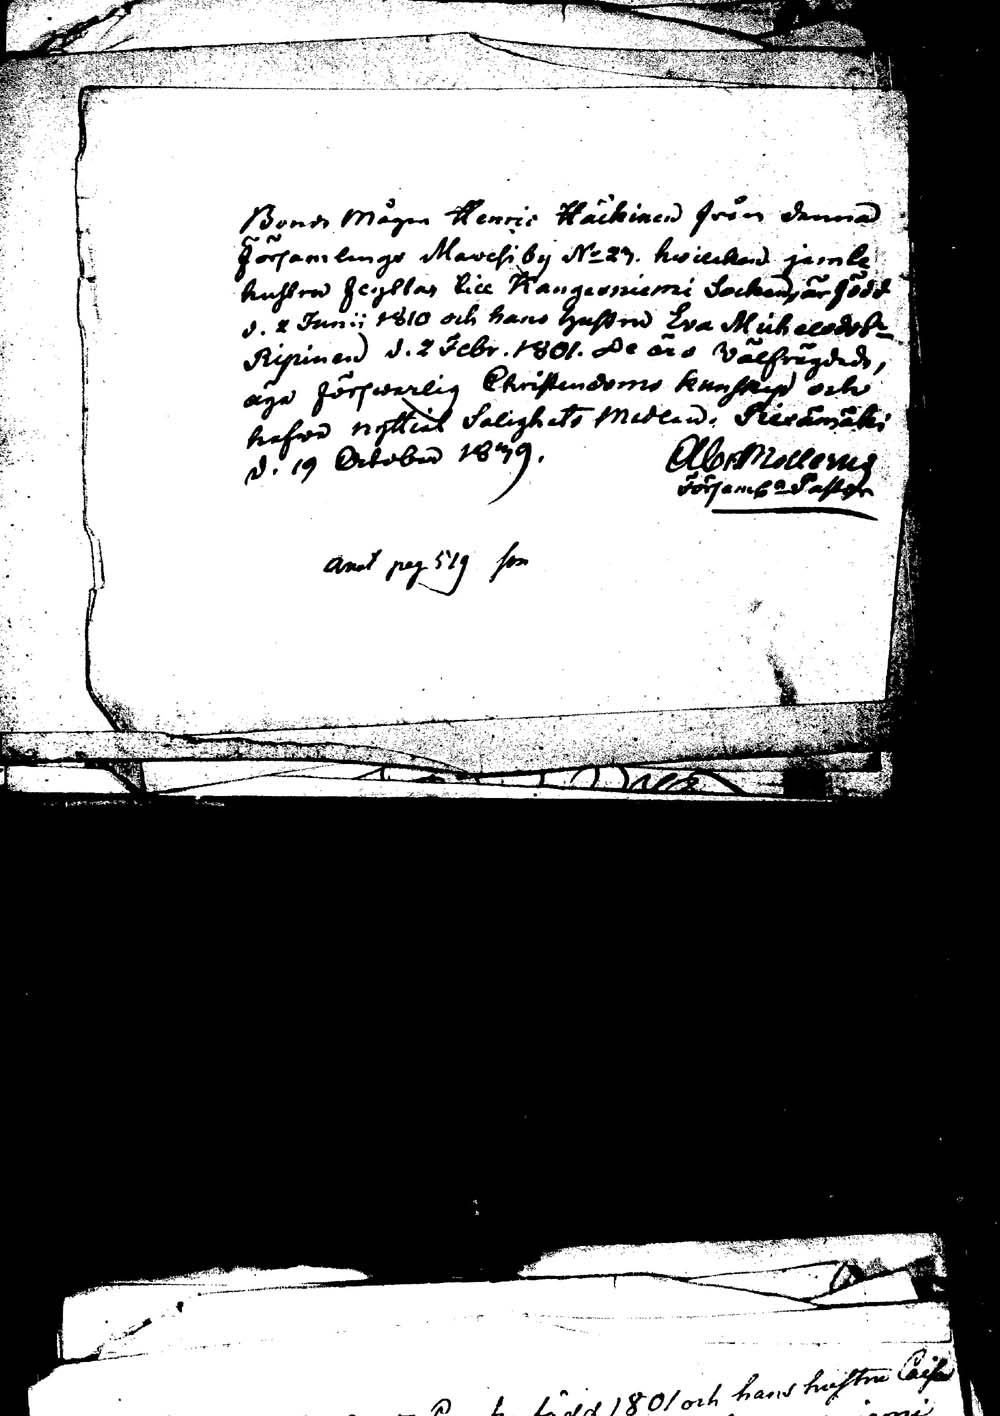 Bonde Mågen Henric Häckinen från denna
Församlings Mavesi by No 27. hvilcken jemte
hustru flyttar till Kangasniemi Socken, är född
d. 2 Junii 1810 och hans hustru Eva Michelsdotr
Ripinen d. 2 Febr. 1801. De äro Välfrägdade,
äga försvarlig Christendoms kunskap och
hafva nyttjat Salighets Medlen. Piexämäki
d. 19 October 1839.
Mollerus
Församl. Pastor
Anot pag 519
född 1801 och hans hustru Caisa